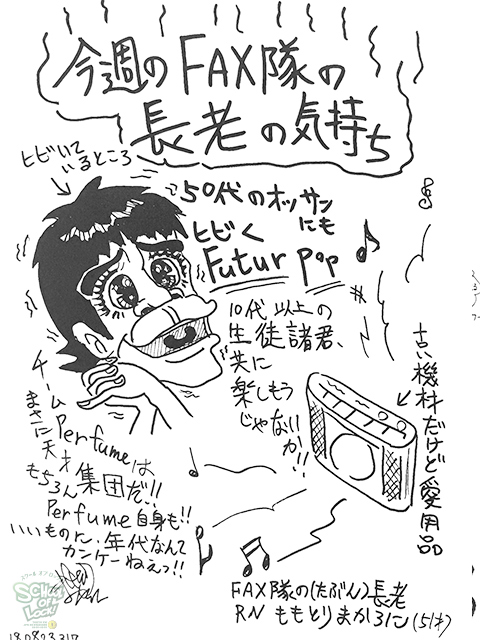 今週のFAX隊の
長老の気持ち
ヒビいて
いるところ
50代のオッサン
にも
ヒビく
Futur Pop
10代以上の
生徒諸君、
共に
楽しもう
じゃない
か!!
古い機材だけど愛用品
チームPerfumeは
まさに天才集団だ!!
もちろん
Perfume自身も!!
いいものに、年代なんて
カンケーねぇっ!!
FAX隊の(たぶん)長老
RN ももとりまかろに(51才)
SCHOOL OF LOCK!